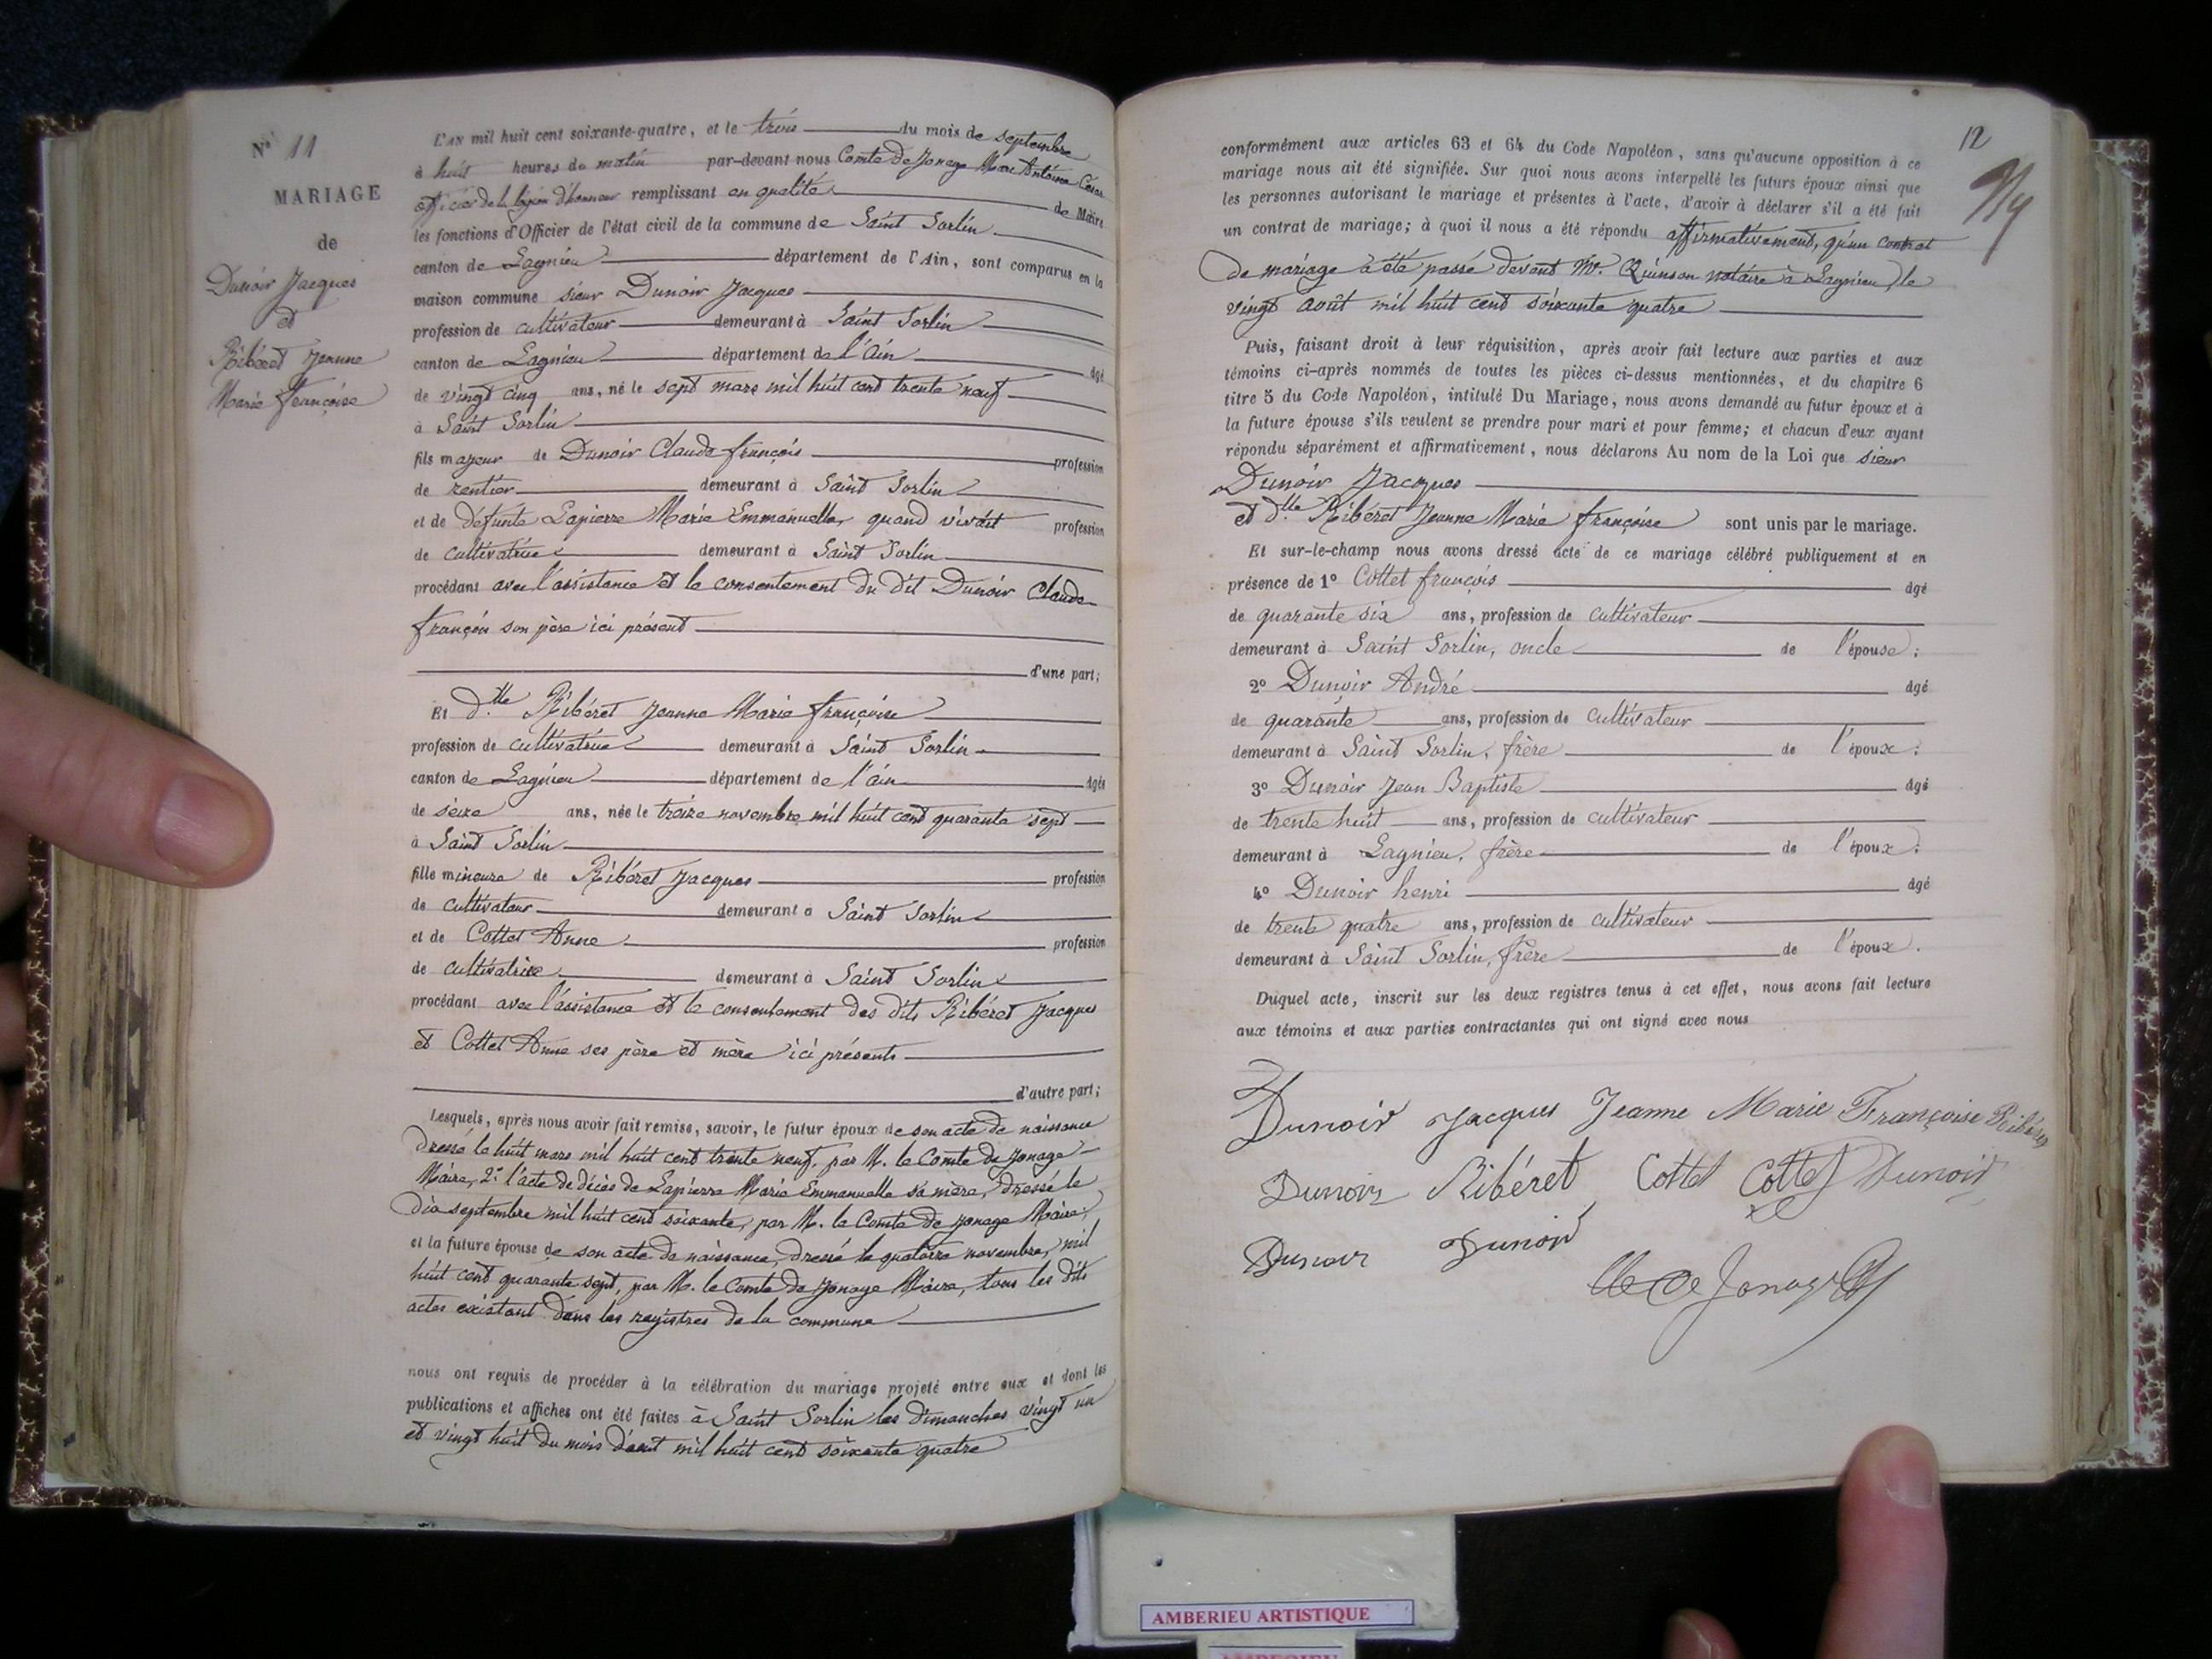 N° 11
MARIAGE
de
Dunoir Jacques
et
Ribéret Jeanne
Marie françoise
L'AN mil huit cent soixante-quatre, et le trois du mois de septembre
à huit heures du matin par-devant nous Comte de Jonage Marc Antoine César
officier de la légion d'honneur remplissant en qualité de Maire
les fonctions d'Officier de l'état civil de la commune de Saint Sorlin
canton de Lagnieu département de l'Ain, sont comparus en la
maison commune sieur Dunoir Jacques
profession de cultivateur demeurant à Saint Sorlin
canton de Lagnieu département de l'Ain âgé
de vingt cinq ans, né le sept mars mil huit cent trente neuf
à Saint Sorlin
fils majeur de Dunoir Claude françois profession
de rentier demeurant à Saint Sorlin
et de défunte Lapierre Marie Emmanuelle, quand vivait profession
de cultivatrice demeurant à Saint Sorlin
procédant avec l'assistance et le consentement du dit Dunoir Claude
françois son père ici présent
d'une part;
Et dlle Ribéret Jeanne Marie françoise
profession de cultivatrice demeurant à Saint Sorlin
canton de Lagnieu département de l'ain âgée
de seize ans, née le treize novembre mil huit cent quarante sept
à Saint Sorlin
fille mineure de Ribéret Jacques profession
de cultivateur demeurant à Saint Sorlin
et de Cottet Anne profession
de cultivatrice demeurant à Saint Sorlin
procédant avec l'assistance et le consentement des dits Ribéret Jacques
et Cottet Anne ses père et mère ici présents
d'autre part;
Lesquels, après nous avoir fait remise, savoir, le futur époux de son acte de naissance
dressé le huit mars mil huit cent trente neuf, par M. le Comte de Jonage
Maire, 2° l'acte de décès de Lapierre Marie Emmanuelle sa mère, dressé le
dix septembre mil huit cent soixante, par M. le Comte de Jonage Maire,
et la future épouse de son acte de naissance, dressé le quatorze novembre, mil
huit cent quarante sept, par M. le Comte de Jonage Maire, tous les dits
actes existant dans les registres de la commune
nous ont requis de procéder à la célébration du mariage projeté entre eux et dont les
publications et affiches ont été faites à Saint Sorlin les dimanches vingt un
et vingt huit du mois d'août mil huit cent soixante quatre
12
conformément aux articles 63 et 64 du Code Napoléon, sans qu'aucune opposition à ce
mariage nous ait été signifiée. Sur quoi nous avons interpellé les futurs époux ainsi que
les personnes autorisant le mariage et présentes à l'acte, d'avoir à déclarer s'il a été fait
un contrat de mariage; à quoi il nous a été répondu affirmativement, qu'un contrat
de mariage a été passé devant Me. Quinson notaire à Lagnieu, le
vingt août mil huit cent soixante quatre
Puis, faisant droit à leur réquisition, après avoir fait lecture aux parties et aux
témoins ci-après nommés de toutes les pièces ci-dessus mentionnées, et du chapitre 6
titre 5 du Code Napoléon, intitulé Du Mariage, nous avons demandé au futur époux et à
la future épouse s'ils veulent se prendre pour mari et pour femme; et chacun d'eux ayant
répondu séparément et affirmativement, nous déclarons Au nom de la Loi que sieur
Dunoir Jacques
et dlle Ribéret Jeanne Marie françoise sont unis par le mariage.
Et sur-le-champ nous avons dressé acte de ce mariage célébré publiquement et en
présence de 1° Cottet françois âgé
de quarante six ans, profession de cultivateur
demeurant à Saint Sorlin, oncle de l'épouse;
2° Dunoir André âgé
de quarante ans, profession de cultivateur
demeurant à Saint Sorlin, frère de l'époux;
3° Dunoir Jean Baptiste âgé
de trente huit ans, profession de cultivateur
demeurant à Lagnieu, frère de l'époux;
4° Dunoir henri âgé
de trente quatre ans, profession de cultivateur
demeurant à Saint Sorlin, frère de l'époux.
Duquel acte, inscrit sur les deux registres tenus à cet effet, nous avons fait lecture
aux témoins et aux parties contractantes qui ont signé avec nous
Dunoir Jacques Jeanne Marie Françoise Ribéret
Dunoir Ribéret Cottet Cottet Dunoir
Dunoir Dunoir
Cte de Jonage
AMBERIEU ARTISTIQUE
AMBERIEU